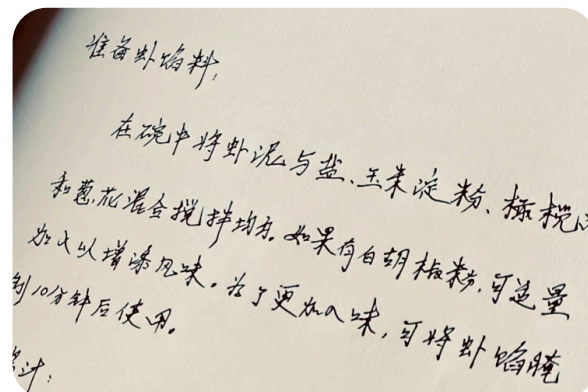 准备虾馅料:
在碗中将虾泥与盐、玉米淀粉、橄榄
和葱花混合搅拌均匀。如果有白胡椒粉,可适量
加入以增添风味。为了更加入味,可将虾馅腌
制10分钟后使用。